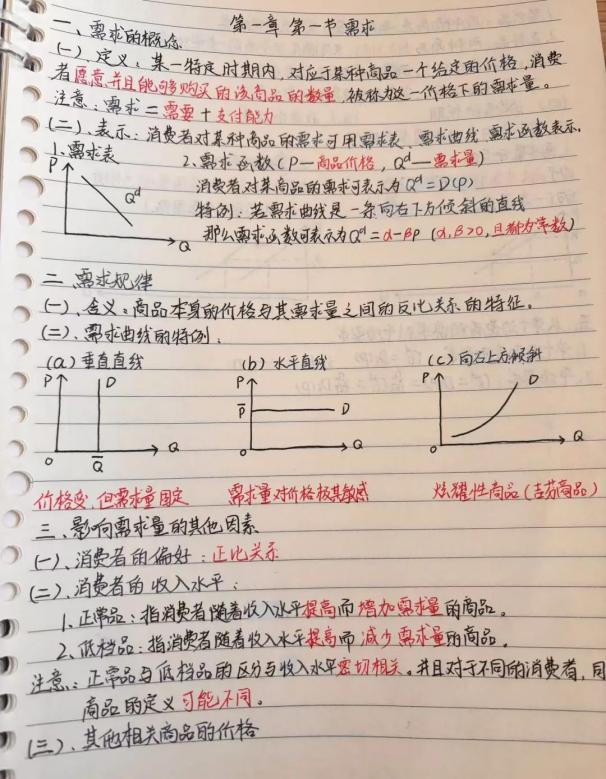 第一章 第一节 需求
一、需求的概念
(一)定义：某一特定时期内，对应于某种商品一个给定的价格，消费
者愿意并且能够购买的该商品的数量，被称为这一价格下的需求量。
注意：需求=需要+支付能力
(二)、表示：消费者对某种商品的需求可用需求表、需求曲线、需求函数表示。
1、需求表
2、需求函数(P—商品价格，Qᵈ—需求量)
消费者对某商品的需求可表示为Qᵈ=D(P)
特例：若需求曲线是一条向右下方倾斜的直线
那么需求函数可表示为Qᵈ=α-βP (α,β>0,且都为常数)
P
Qᵈ
Q
二、需求规律
(一)、含义：商品本身的价格与其需求量之间的反比关系的特征。
(二)、需求曲线的特例：
(a)垂直直线
(b)水平直线
(c)向右上方倾斜
P D
O Q̅ Q
P
P̅ D
O Q
P D
O Q
价格变，但需求量固定
需求量对价格极其敏感
炫耀性商品(吉芬商品)
三、影响需求量的其他因素
(一)、消费者的偏好：正比关系
(二)、消费者的收入水平：
1、正常品：指消费者随着收入水平提高而增加需求量的商品。
2、低档品：指消费者随着收入水平提高而减少需求量的商品。
注意：正常品与低档品的区分与收入水平密切相关。并且对于不同的消费者，同
商品的定义可能不同。
(三)、其他相关商品的价格